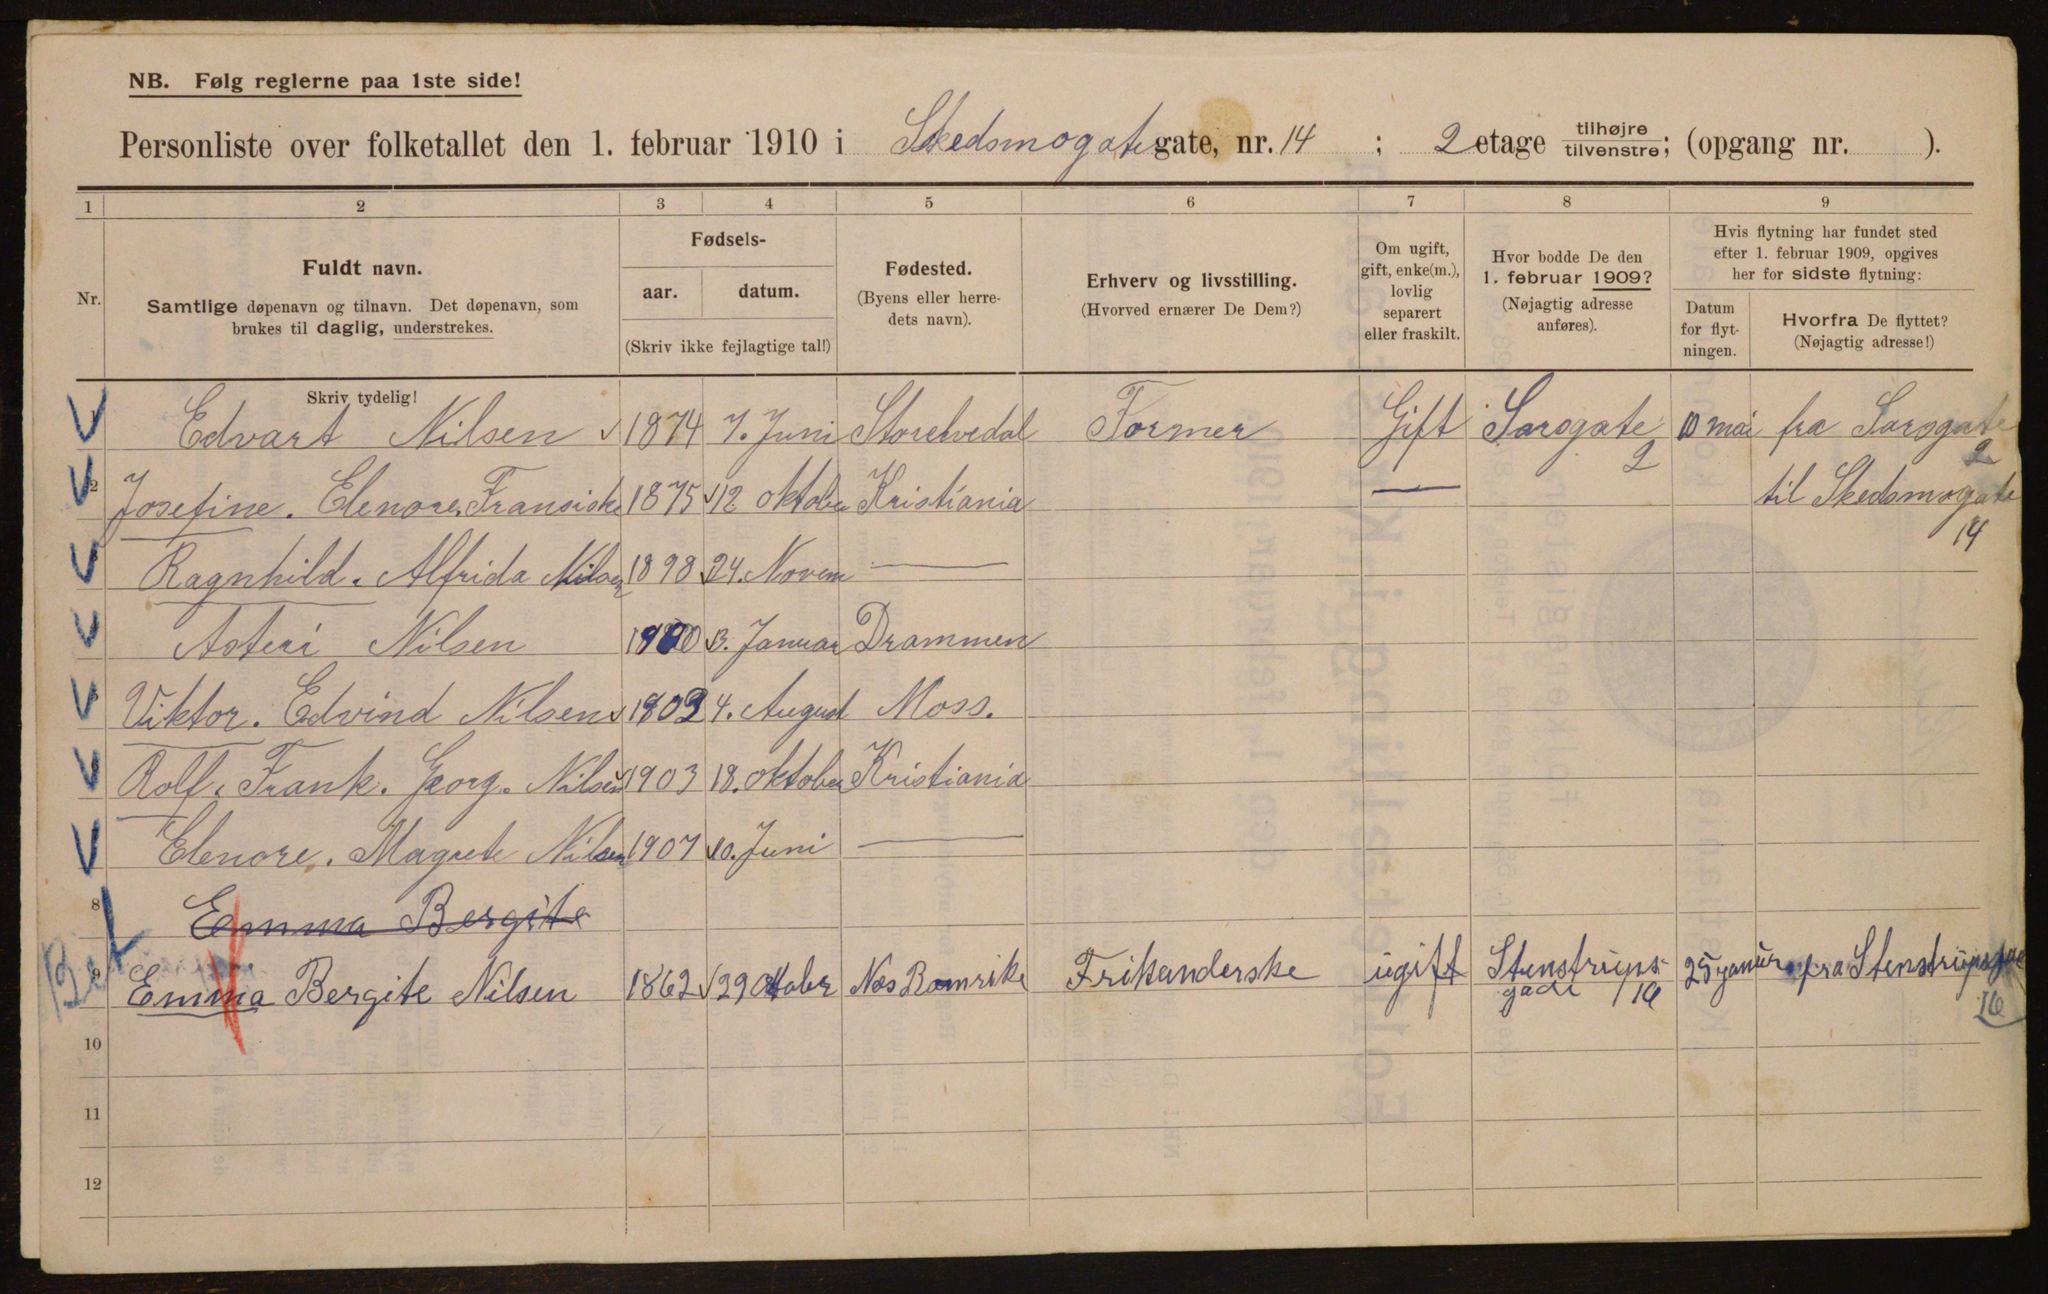 NB. Følg reglerne paa 1ste side!
Personliste over folketallet den 1. februar 1910 i Skedsmogate gate, nr. 14 ; 2 etage tilhøjre tilvenstre; (opgang nr. ).
1 2 3 4 5 6 7 8 9
Nr.
Fuldt navn.
Samtlige døpenavn og tilnavn. Det døpenavn, som
brukes til daglig, understrekes.
Fødsels-
aar. datum.
(Skriv ikke fejlagtige tal!)
Fødested.
(Byens eller herre-
dets navn).
Erhverv og livsstilling.
(Hvorved ernærer De Dem?)
Om ugift,
gift, enke(m.),
lovlig
separert
eller fraskilt.
Hvor bodde De den
1. februar 1909?
(Nøjagtig adresse
anføres).
Hvis flytning har fundet sted
efter 1. februar 1909, opgives
her for sidste flytning:
Datum
for flyt-
ningen.
Hvorfra De flyttet?
(Nøjagtig adresse!)
Skriv tydelig!
1 Edvart Nilsen 1874 7. Juni Storelvedal Former Gift Sarsgate 2 10 mai fra Sarsgate 2
2 Josefine. Elenore. Fransiske 1875 12 oktober Kristiania — til Skedsmogate 14
3 Ragnhild. Alfrida Nilsen 1898 24. Novem —
Asteri Nilsen 1900 3. Januar Drammen
5 Viktor. Edvind Nilsen 1902 4. August Moss.
6 Rolf. Frank. Georg. Nilsen 1903 18. oktober Kristiania
Elenore. Magrete Nilsen 1907 10. Juni —
8 Emma Bergite
9 Emma Bergite Nilsen 1862 29 Oktober Nes Romrike Frikanderske ugift Stenstrups-
gade 16 25 januar fra Stenstrupsgade 16
10
11
12